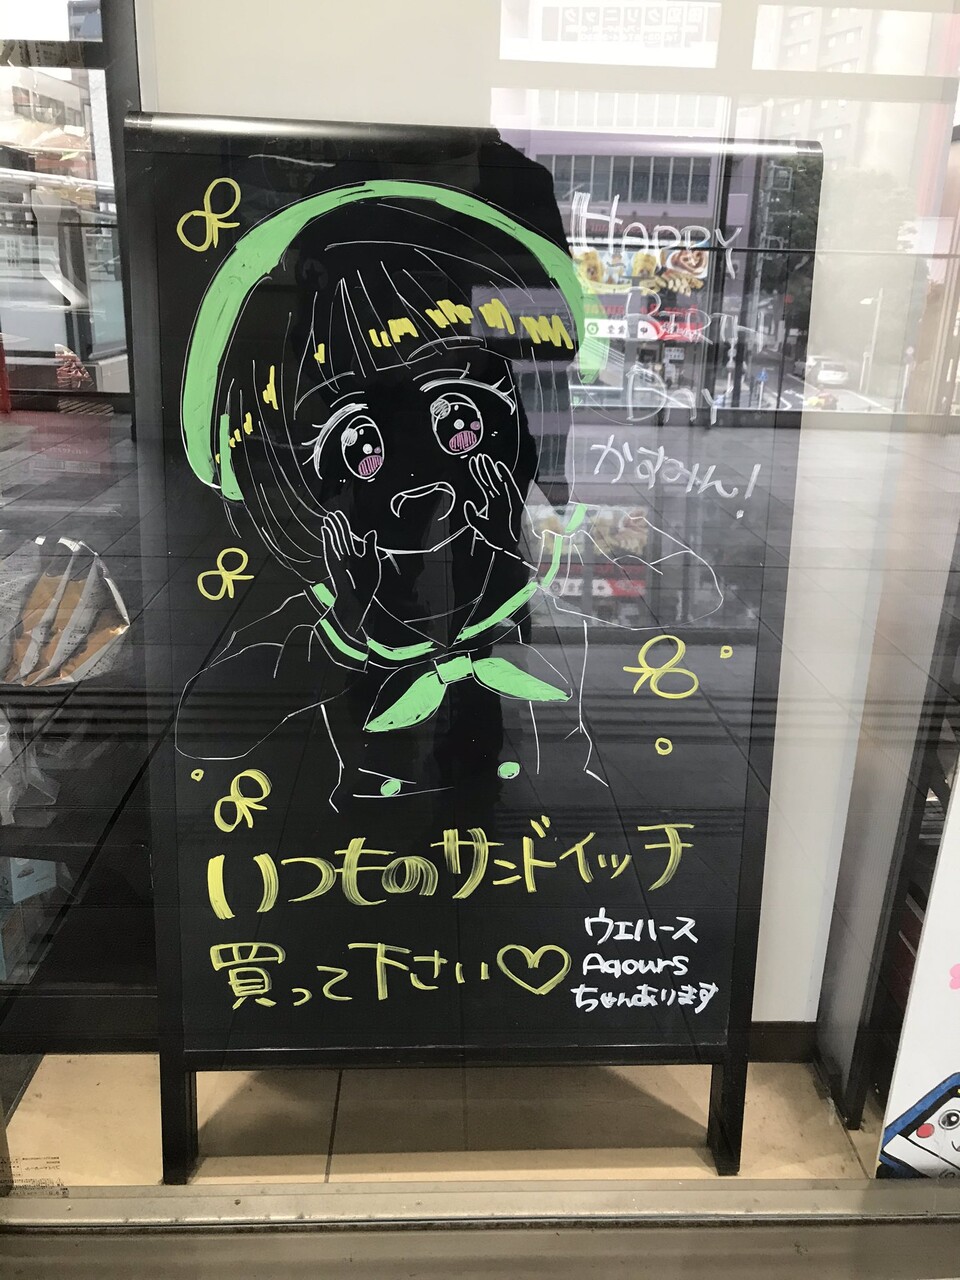 HAPPY
BIRTH
DAY
かすみん!
いつものサンドイッチ
買って下さい♡
ウエハース
Aqours
ちゃんあります